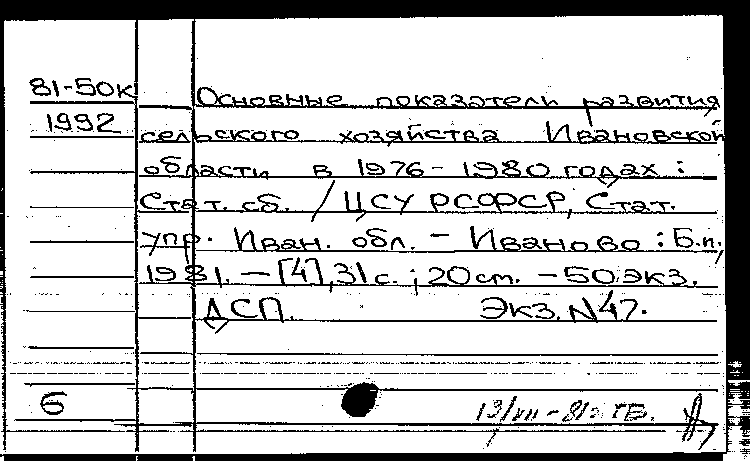 81-50к
1992
Основные показатели развития
сельского хозяйства Ивановской
области в 1976-1980 годах :
Стат. сб. / ЦСУ РСФСР, Стат.
упр. Иван. обл. - Иваново : Б.и.,
1981. - [4], 31 с. ; 20 см. - 50 экз.
ДСП. Экз. N47.
Б
13/VII-81г. ТБ.